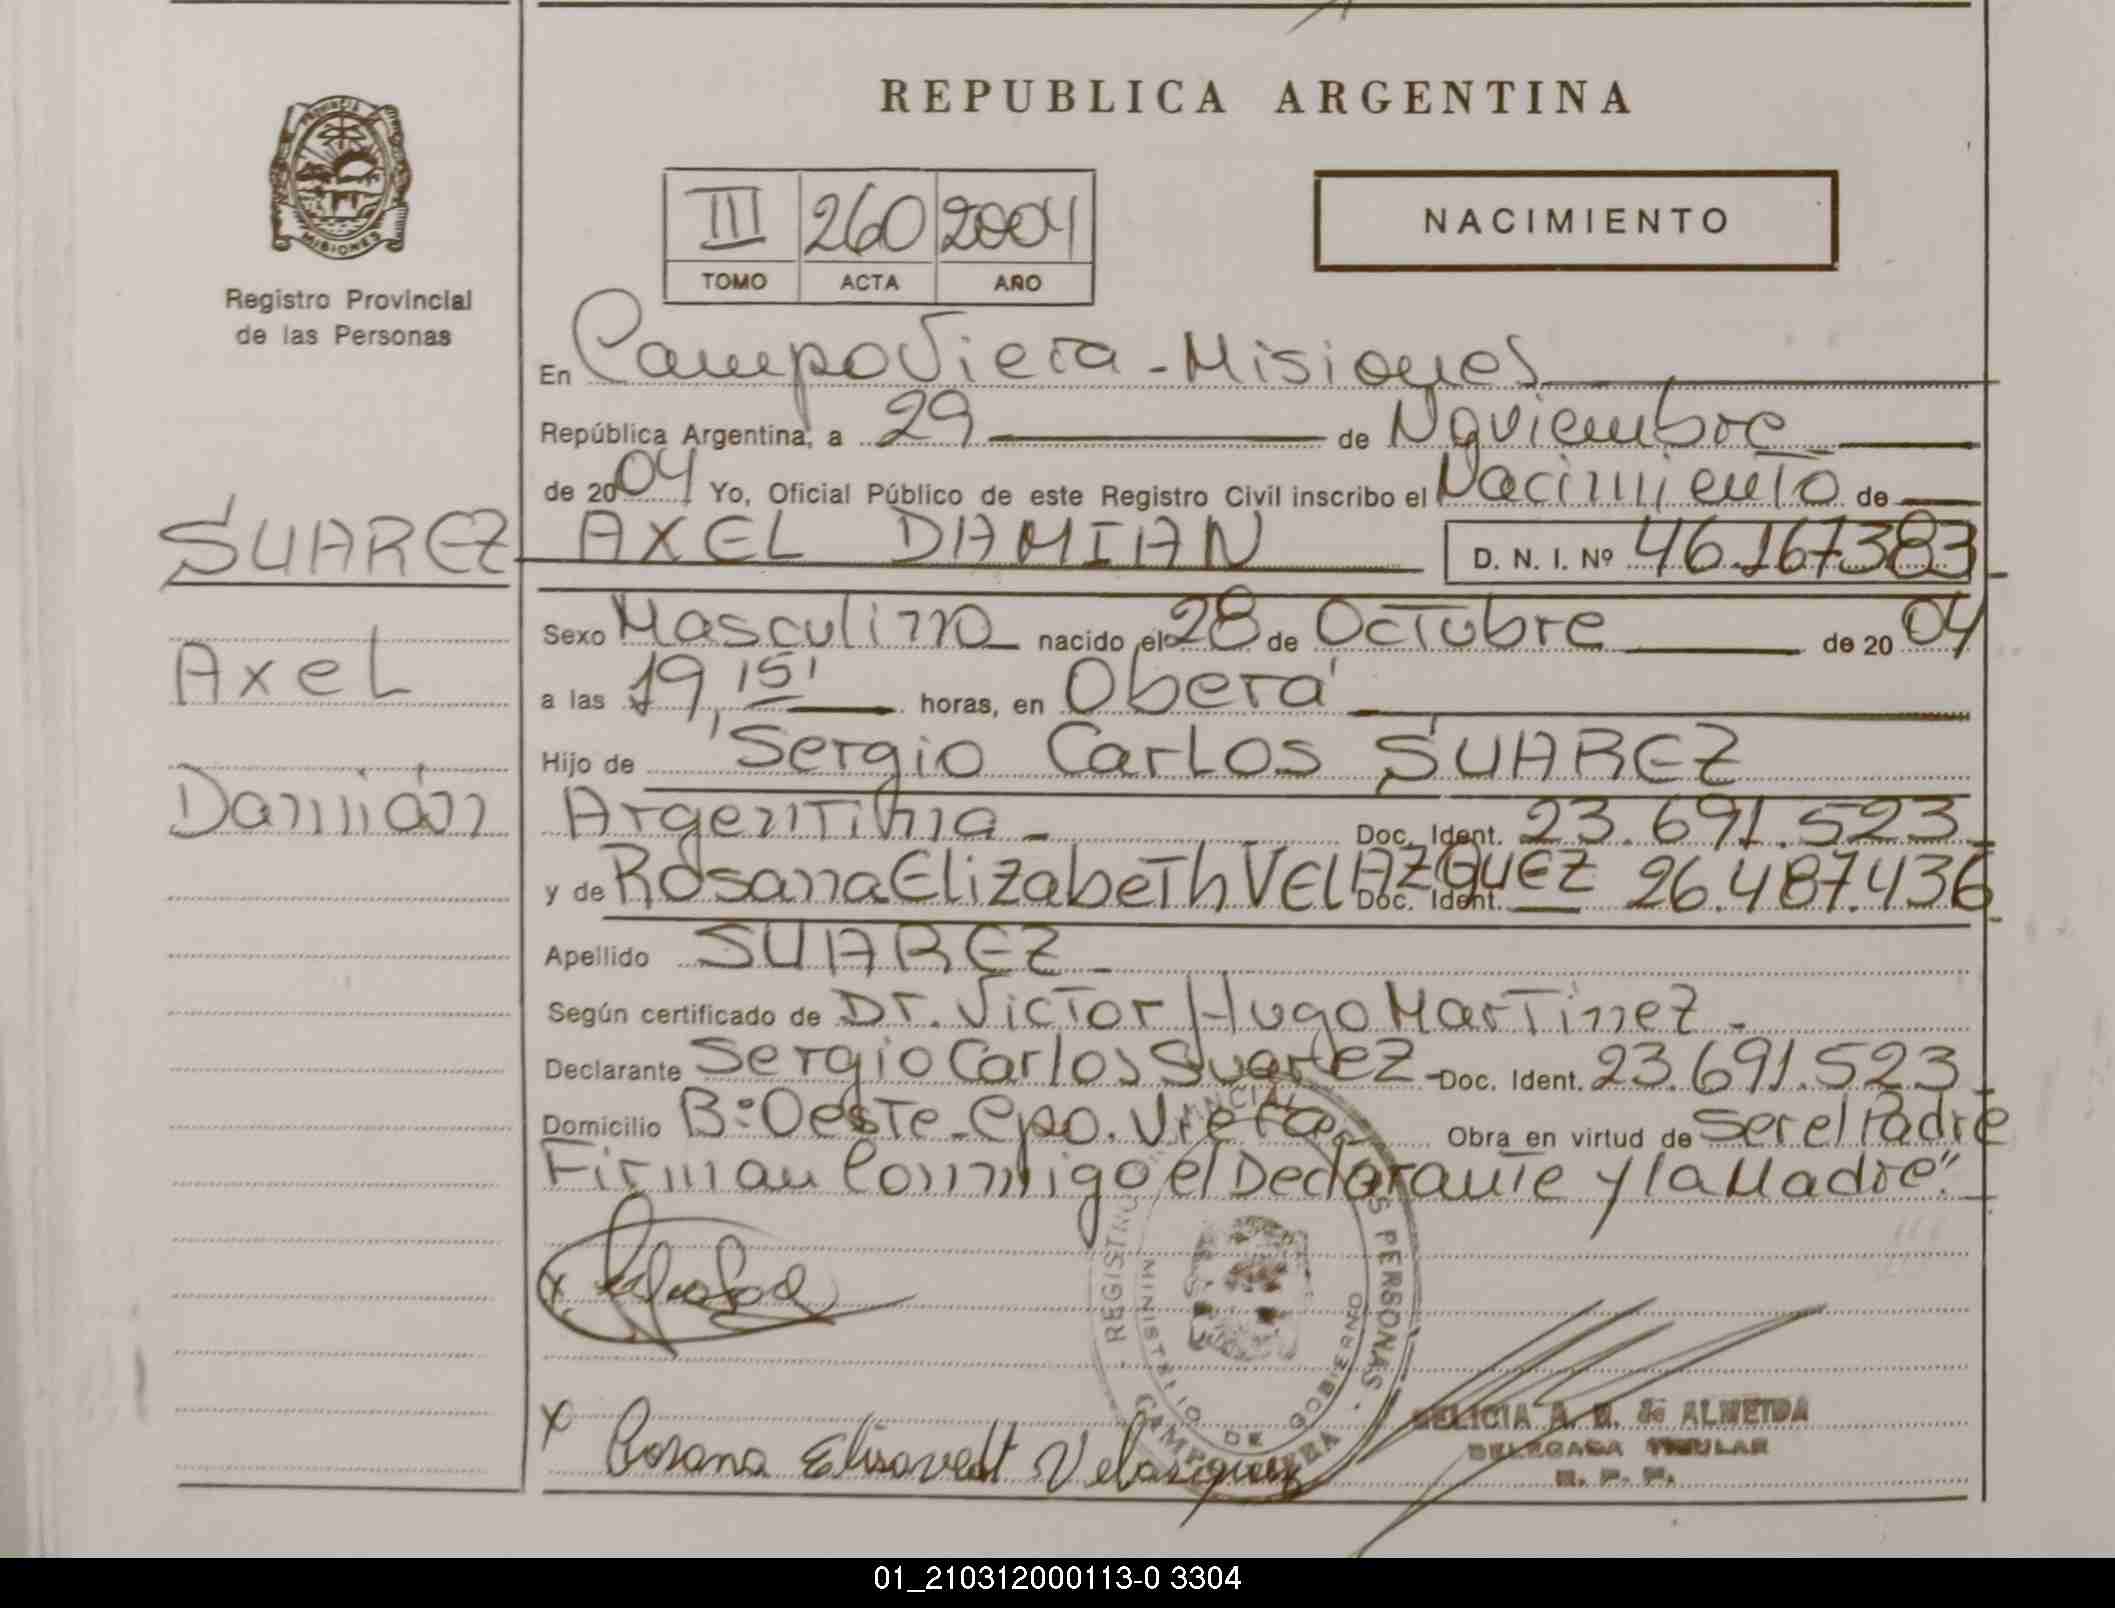 REPUBLICA ARGENTINA
PROVINCIA
MISIONES
Registro Provincial
de las Personas
III 260 2004
TOMO ACTA AÑO
NACIMIENTO
En Campo Viera - Misiones
República Argentina, a 29 de Noviembre
de 2004 Yo, Oficial Público de este Registro Civil inscribo el Nacimiento de
SUAREZ AXEL DAMIAN D. N. I. Nº 46.167383
Axel
Damián
Sexo Masculino nacido el 28 de Octubre de 2004
a las 19,15' horas, en Oberá
Hijo de Sergio Carlos SUAREZ
Argentina - Doc. Ident. 23.691.523
y de Rosana Elizabeth VELAZQUEZ Doc. Ident. 26.487.436
Apellido SUAREZ -
Según certificado de Dr. Victor Hugo Martinez -
Declarante Sergio Carlos Suarez - Doc. Ident. 23.691.523
Domicilio B:Oeste - Cpo. Viera Obra en virtud de Ser el Padre
Firman Conmigo el Declarante y la Madre".
REGISTRO PROVINCIAL PERSONAS
MINISTERIO DE GOBIERNO
CAMPO VIERA
X
X Rosana Elisavedt Velasquez
DELICIA A. M. de ALMEIDA
DELEGADA TITULAR
R. P. P.
01_210312000113-0 3304